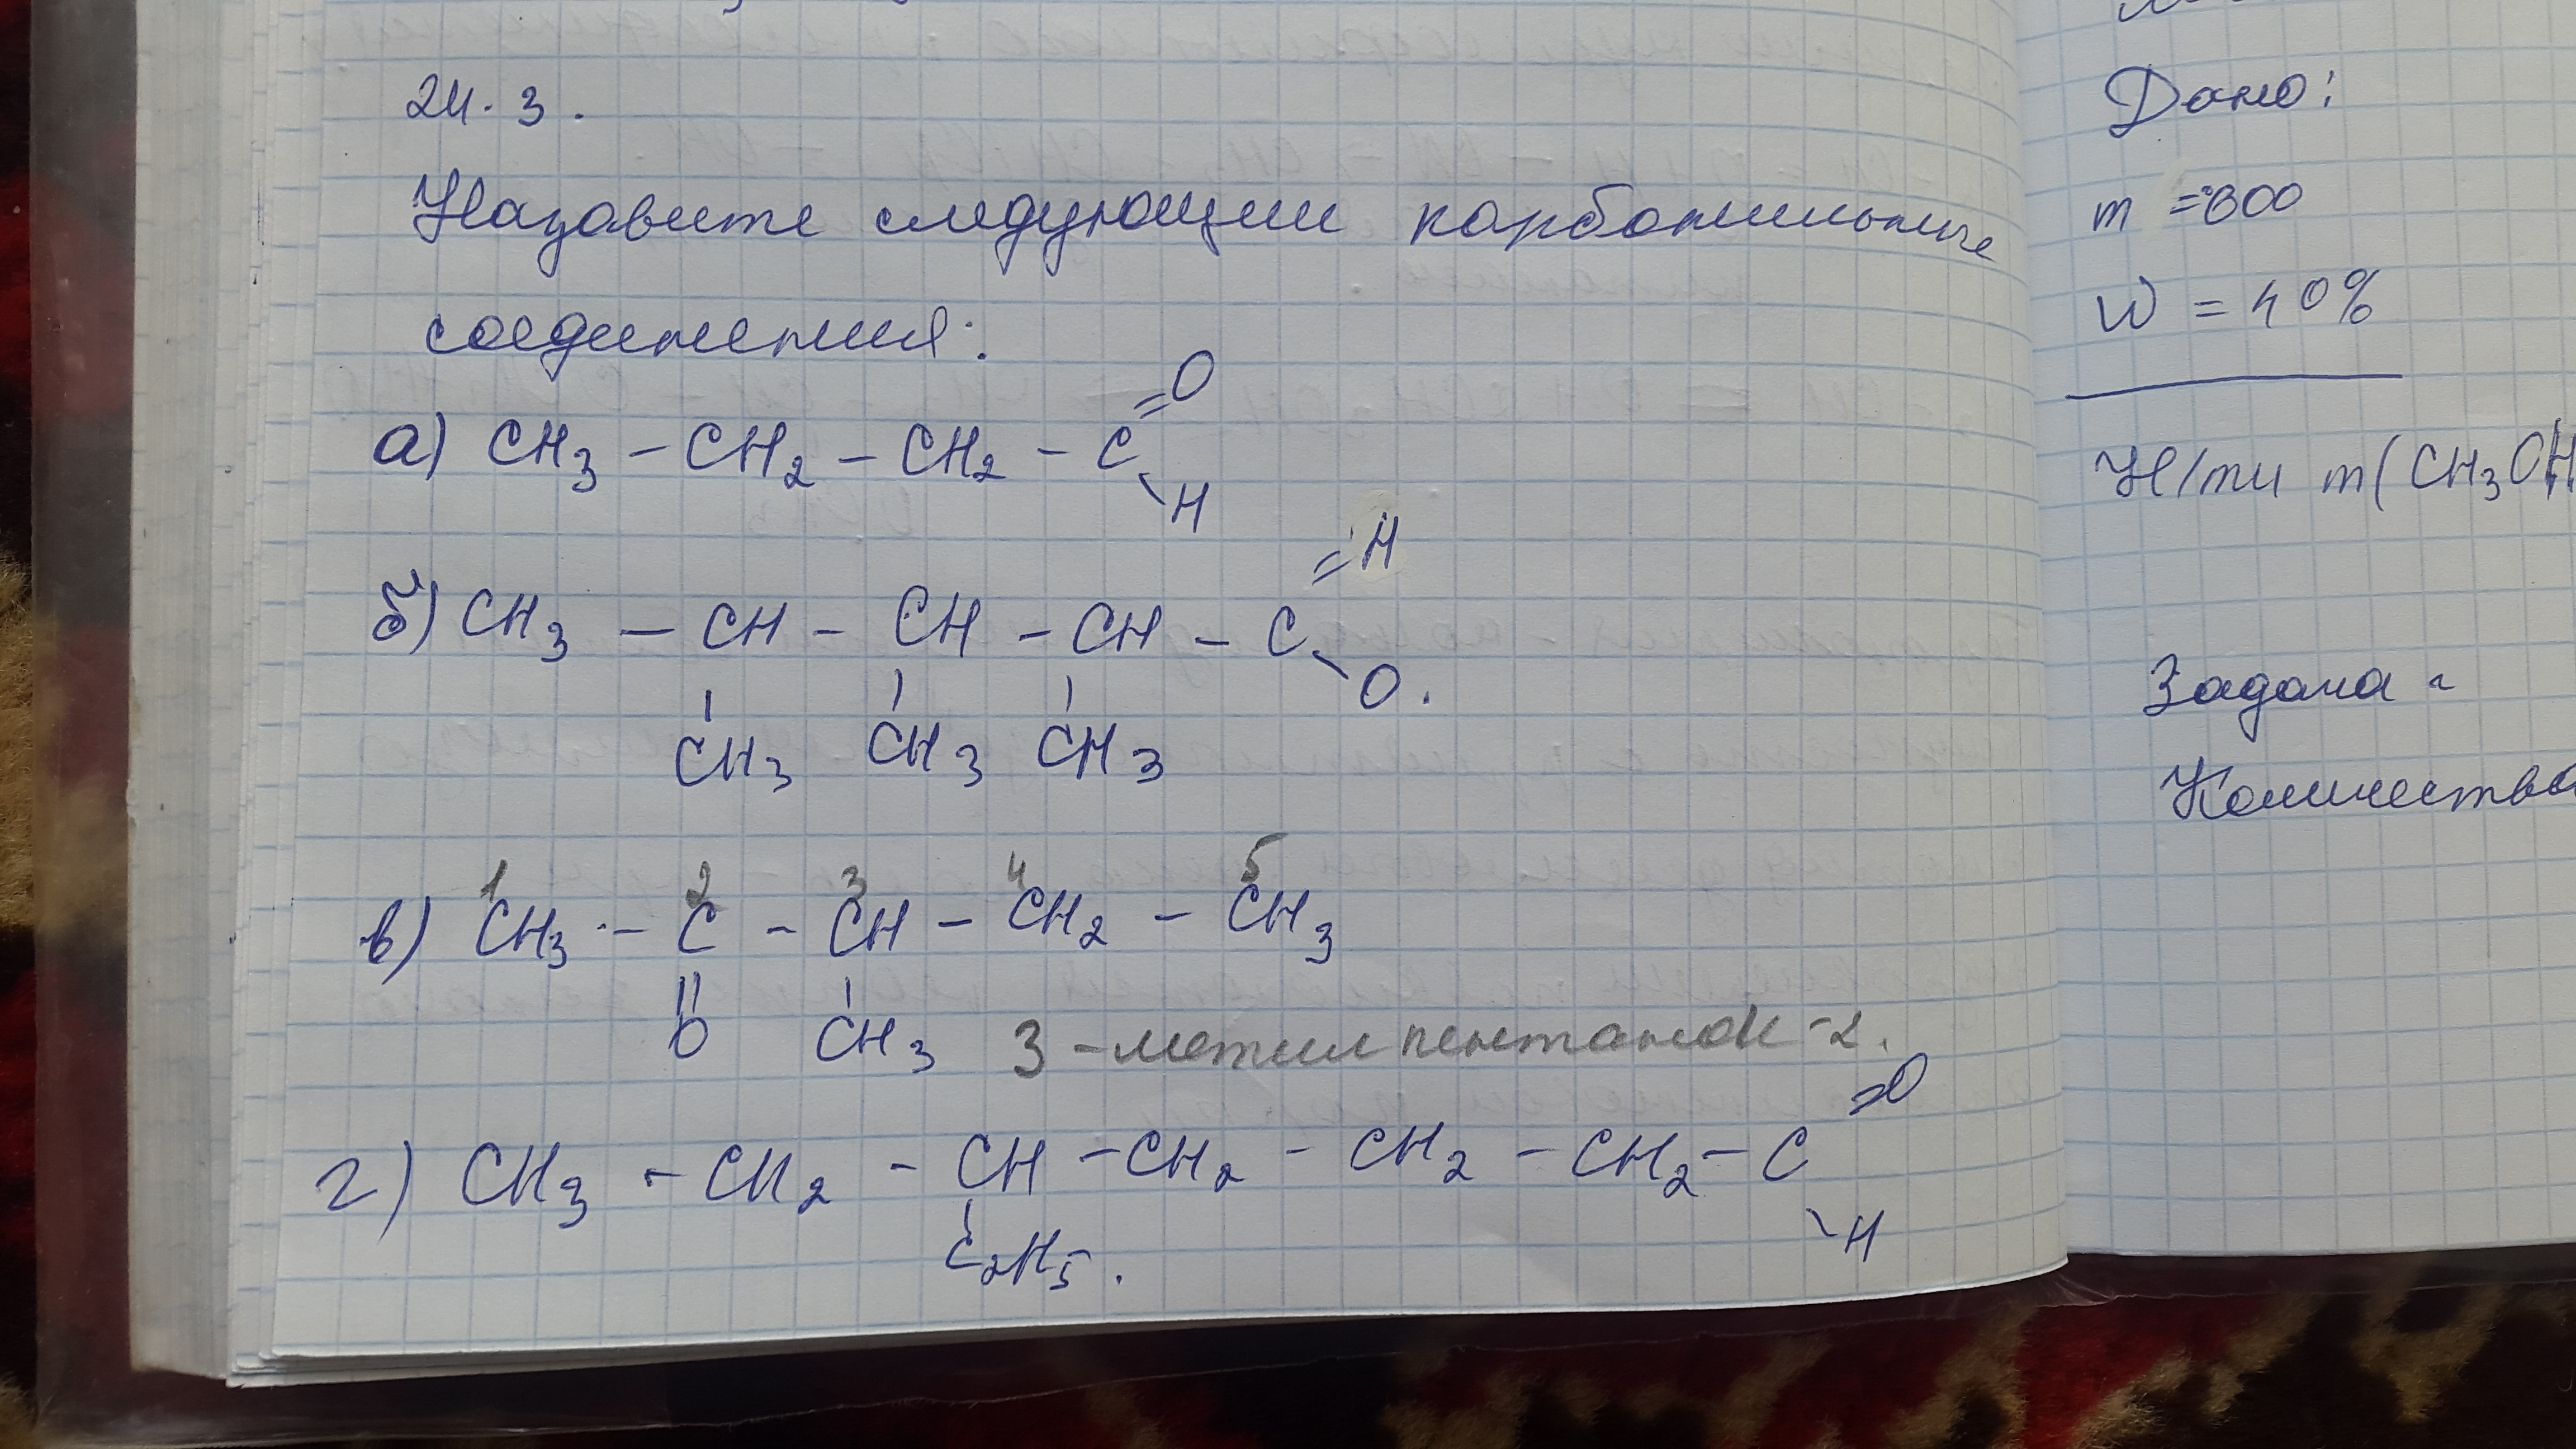 24.3.
Назовите следующии карбонильные
соединения:
=O
а) CH3 - CH2 - CH2 - C
H
=H
б) CH3 - CH - CH - CH - C
O.
CH3 CH3 CH3
1 2 3 4 5
в) CH3 - C - CH - CH2 - CH3
O CH3 3 - метил пентанон -2.
=O
г) CH3 - CH2 - CH - CH2 - CH2 - CH2 - C
H
C2H5.
Дано:
m =800
W = 40%
Н/ти m(CH3OH
Задача
Количества